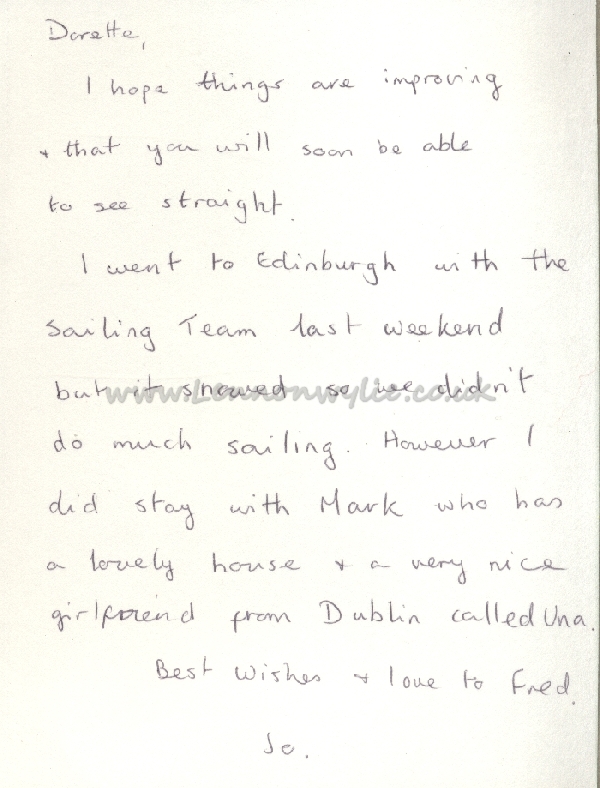 Dorette,
I hope things are improving
+ that you will soon be able
to see straight.
I went to Edinburgh with the
Sailing Team last weekend
but it snowed so we didn't
www.Lennonwylie.co.uk
do much sailing. However I
did stay with Mark who has
a lovely house + a very nice
girlfriend from Dublin called Una.
Best Wishes + love to Fred.
Jo.